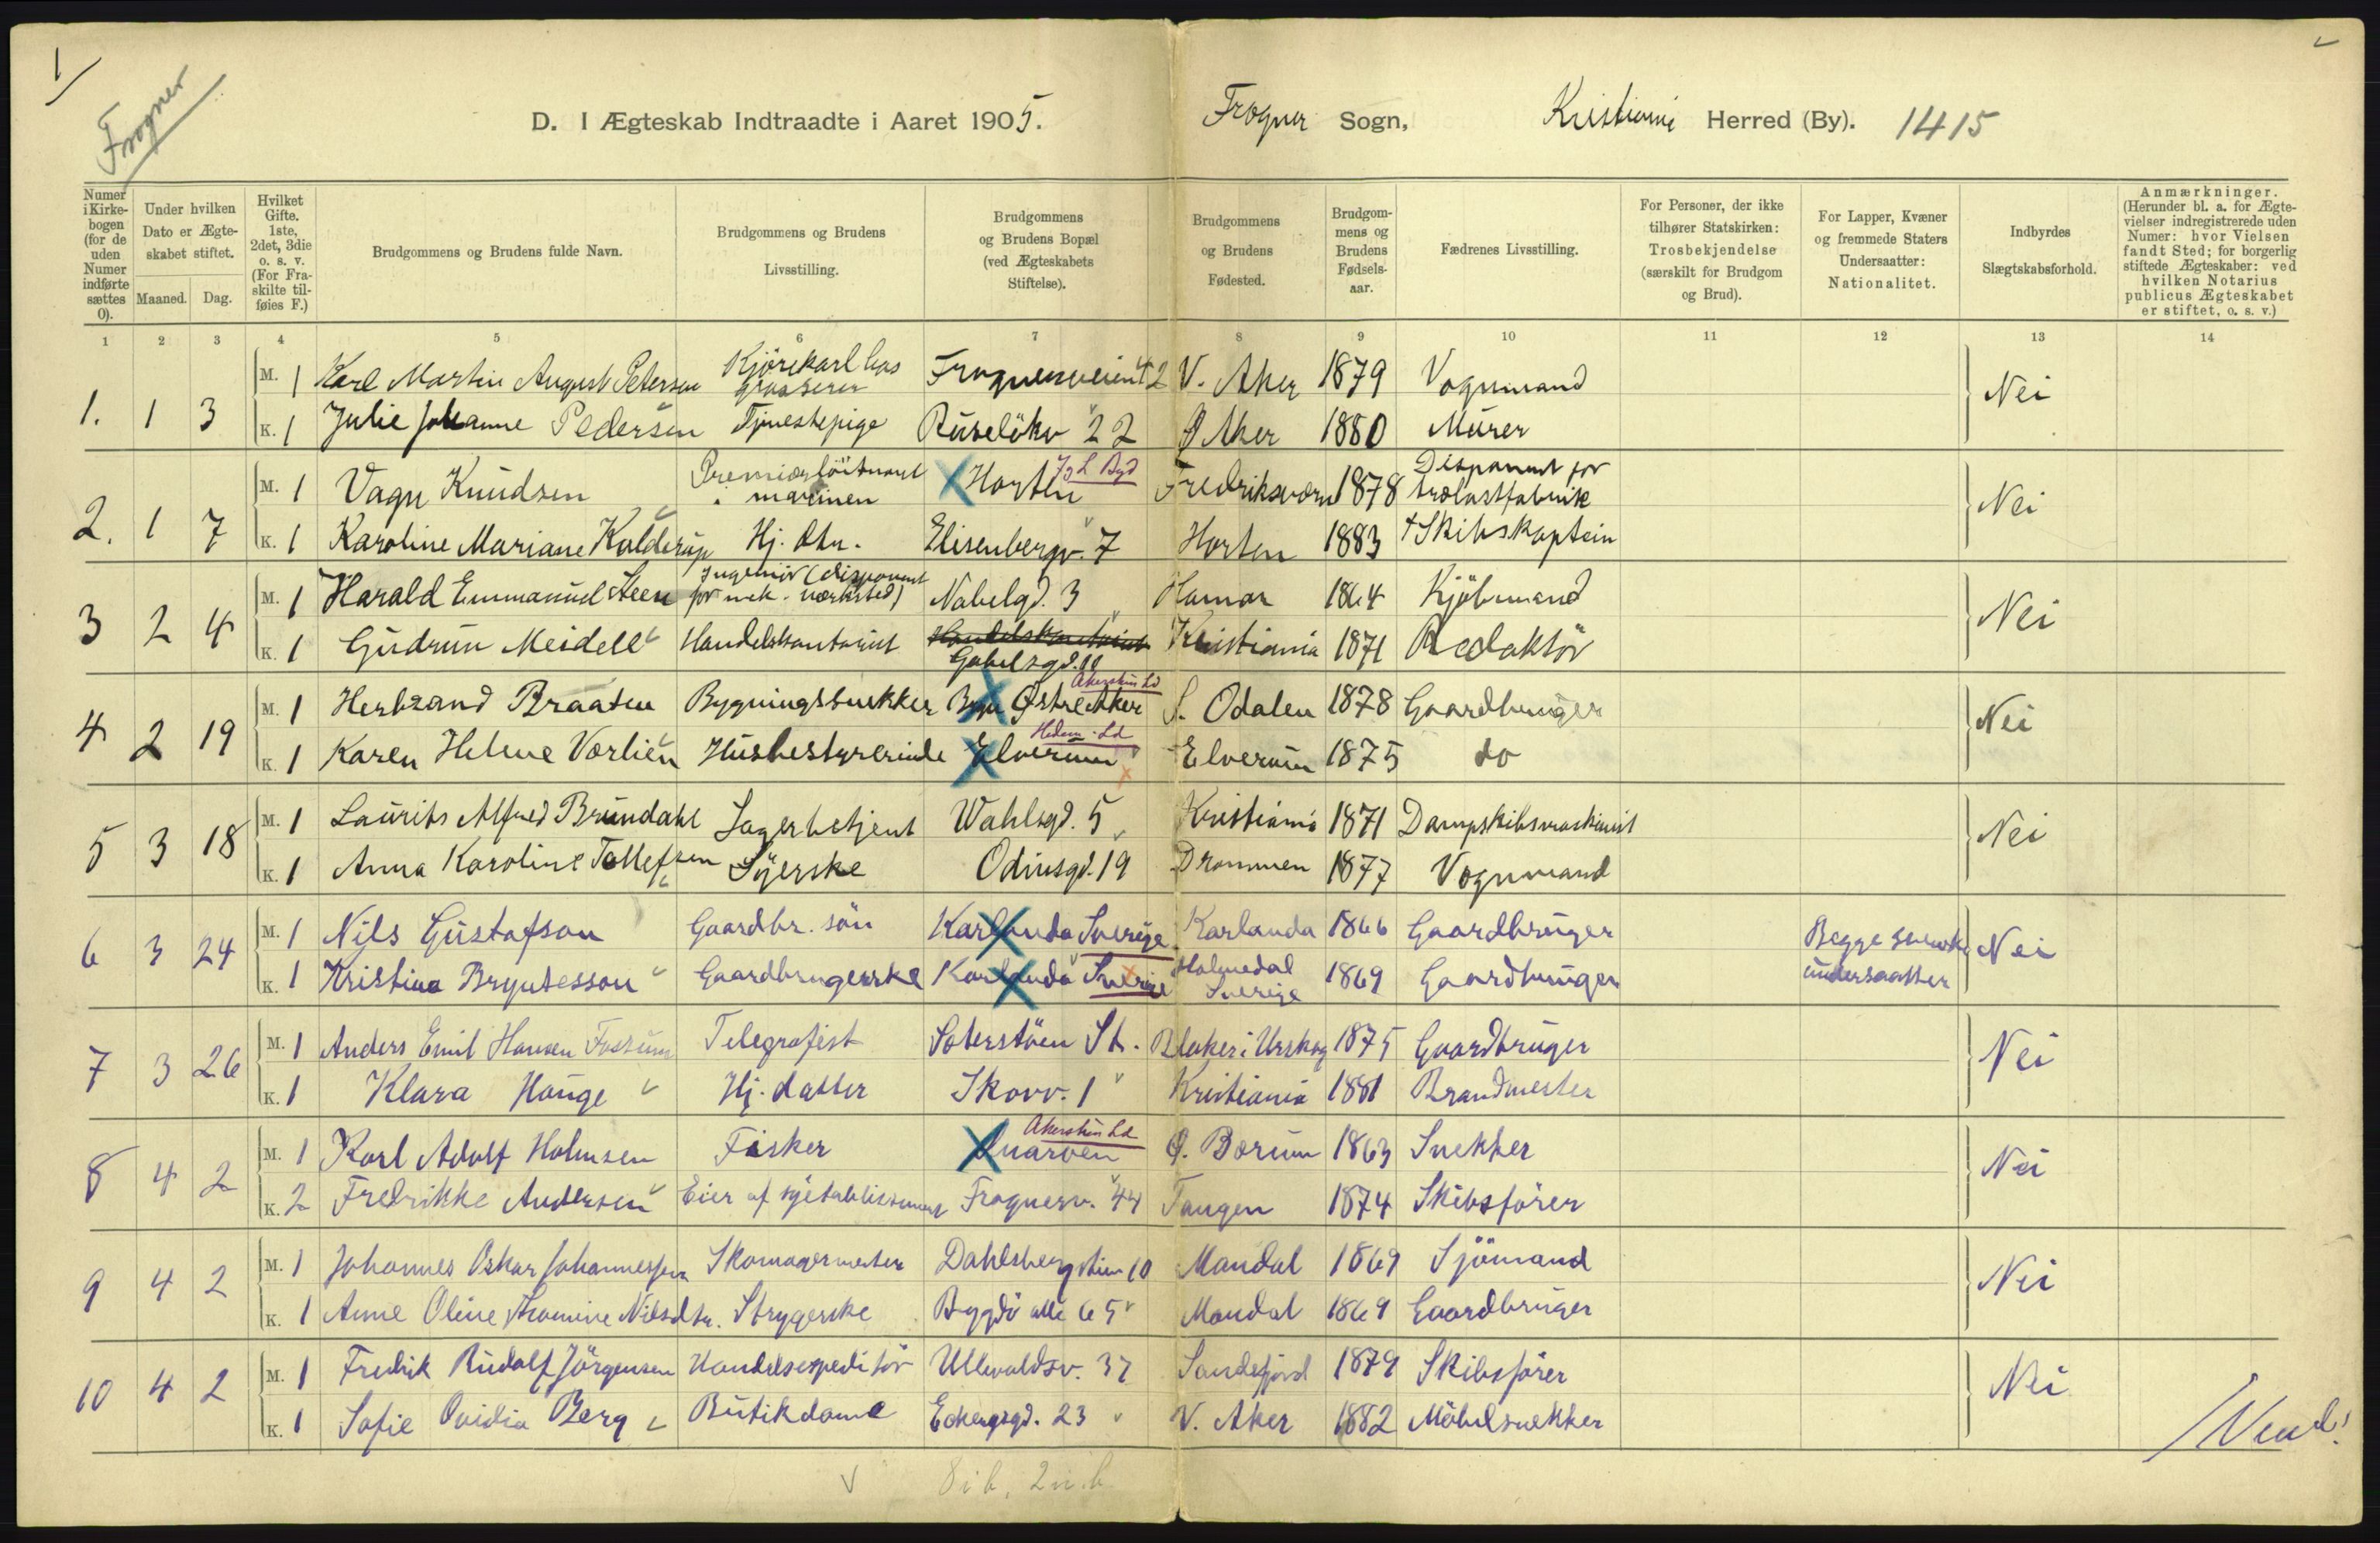 1
Frogner
D. I Ægteskab Indtraadte i Aaret 1905. Frogner Sogn, Kristiania Herred (By). 1415
Numer i Kirkebogen (for de uden Numer indførte sættes 0).
Under hvilken Dato er Ægteskabet stiftet.
Maaned. Dag.
Hvilket Gifte. 1ste, 2det, 3die o. s. v. (For Fraskilte tilføies F.)
Brudgommens og Brudens fulde Navn.
Brudgommens og Brudens Livsstilling.
Brudgommens og Brudens Bopæl (ved Ægteskabets Stiftelse).
Brudgommens og Brudens Fødested.
Brudgommens og Brudens Fødselsaar.
Fædrenes Livsstilling.
For Personer, der ikke tilhører Statskirken: Trosbekjendelse (særskilt for Brudgom og Brud).
For Lapper, Kvæner og fremmede Staters Undersaatter: Nationalitet.
Indbyrdes Slægtskabsforhold.
Anmærkninger. (Herunder bl. a. for Ægtevielser indregistrerede uden Numer: hvor Vielsen fandt Sted; for borgerlig stiftede Ægteskaber: ved hvilken Notarius publicus Ægteskabet er stiftet, o. s. v.)
1 2 3 4 5 6 7 8 9 10 11 12 13 14
1. 1 3 M. 1 Karl Martin August Petersen Kjörekarl hos Frognerveien 42 V. Aker 1879 Vognmand Nei
K. 1 Julie Johanne Pedersen Tjenestepige Ruselökv 22 Ø Aker 1880 Murer
2. 1 7 M. 1 Vagn Knudsen Premierlöitnant i marinen Horten Fredriksværn 1878 Disponent for trælastfabrik Nei
K. 1 Karoline Mariane Kolderup Hj. dtr. Elisenbergv. 7 Horten 1883 +Skibskaptein
3 2 4 M. 1 Harald Emmanuel Steen Ingeniör (disponent for mek. værksted) Nobelgd. 3 Hamar 1864 Kjöbmand Nei
K. 1 Gudrun Meidell Handelskontorist Handelskontorist Gabelsgd. 11 Kristiania 1871 Redaktör
4 2 19 M. 1 Herbrand Braaten Bygningssnekker Bryn Østre Aker Akershus Ld S. Odalen 1878 Gaardbruger Nei
K. 1 Karen Helene Vorlien Husbestyrerinde Elverum Hedem. Ld Elverum 1875 do
5 3 18 M. 1 Laurits Alfred Brundahl Lagerbetjent Wahlsgd. 5 Kristiania 1871 Dampskibsmaskinist Nei
K. 1 Anna Karoline Tollefsen Syerske Odinsgd. 19 Drammen 1877 Vognmand
6 3 24 M. 1 Nils Gustafson Gaardbr. sön Karlanda Sverige Karlanda 1866 Gaardbruger Begge svenske undersaatter Nei
K. 1 Kristina Bryntesson Gaardbrugerske Karlanda Sverige Holmedal Sverige 1869 Gaardbruger
7 3 26 M. 1 Anders Emil Hansen Fossum Telegrafist Soterstöen St. Blaker i Urskog 1875 Gaardbruger Nei
K. 1 Klara Hauge Hj. datter Skovv. 1 Kristiania 1881 Brandmester
8 4 2 M. 1 Karl Adolf Holmsen Fisker Snarøen Akershus Ld Ø. Bærum 1863 Snekker Nei
K. 2 Fredrikke Andersen Eier af syetablissement Frognerv. 44 Tangen 1874 Skibsförer
9 4 2 M. 1 Johannes Oskar Johannessen Skomagermester Dahlsbergstien 10 Mandal 1869 Sjömand Nei
K. 1 Anne Oline Thomine Nilsdtr. Strygerske Bygdö allé 65 Mandal 1869 Gaardbruger
10 4 2 M. 1 Fredrik Rudolf Jörgensen Handelsexpeditör Ullevoldsv. 37 Sandefjord 1879 Skibsförer Nei
K. 1 Sofie Ovidia Berg Butikdame Eckersgd. 23 V. Aker 1882 Möbelsnekker
Vend!
8 i b, 2 u. b.